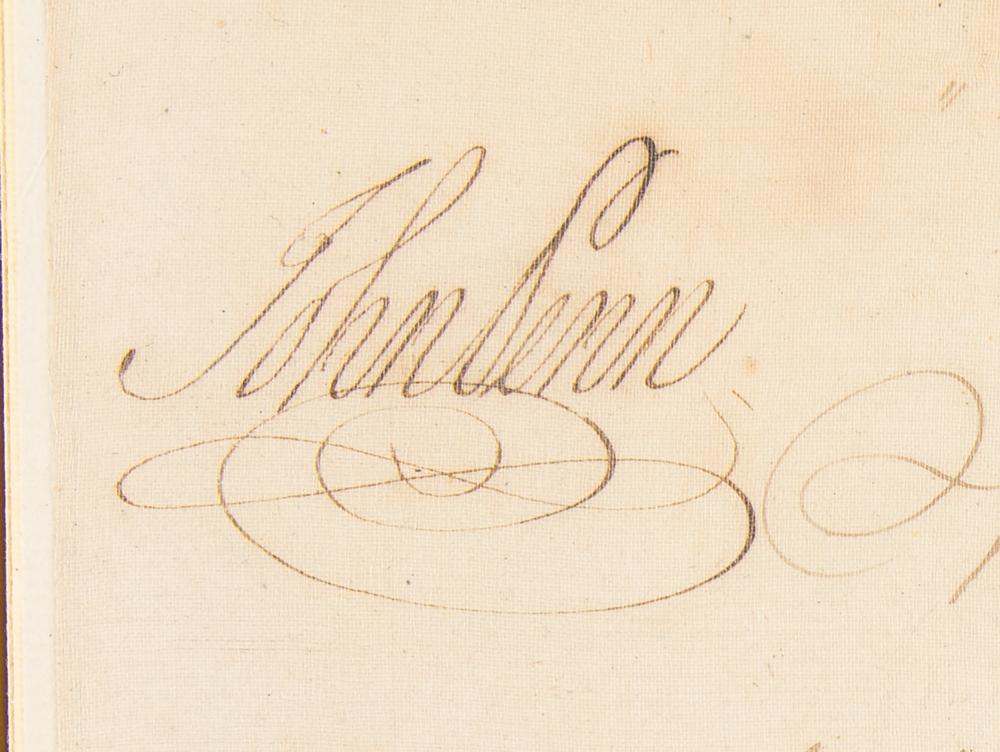 John Penn